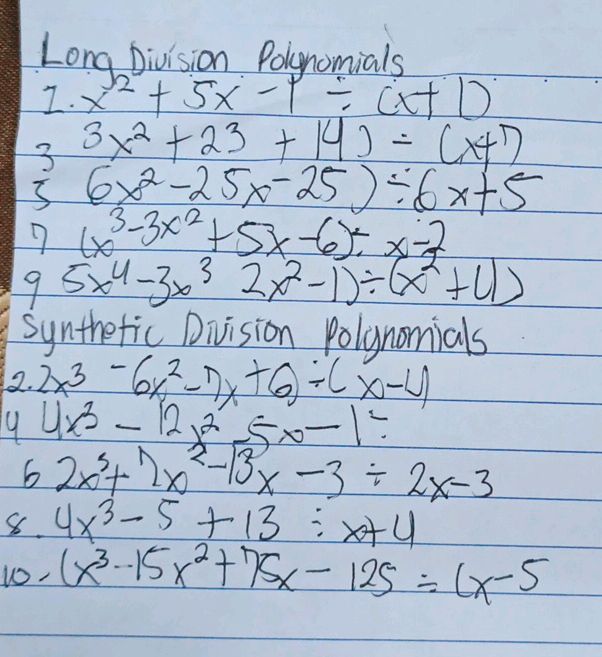 Long Division Polynomials
1. x² + 5x - 1 ÷ (x+1)
3 3x² + 23 + 14) ÷ (x+7)
5 6x² - 25x - 25) ÷ 6x+5
7 (x³ - 3x² + 5x - 6) ÷ x-2
9 5x⁴ - 3x³ 2x² - 1) ÷ (x² + 4)
Synthetic Division Polynomials
2. 2x³ - 6x² - 7x + 6) ÷ (x-4)
4 4x³ - 12x² - 5x - 1 ÷
6 2x³ + 7x² - 13x - 3 ÷ 2x-3
8. 4x³ - 5 + 13 ÷ x+4
10. (x³ - 15x² + 75x - 125 ÷ (x-5